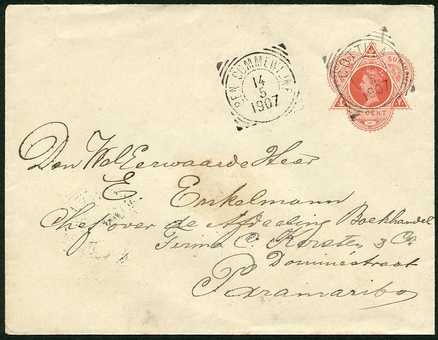 DEN COMMEWIJNE
14
5
1907
COTTICA
1907
SUR
CENT
Den WolEerwaarde Heer
E. Enkelmann
Chef over de Afdeeling Boekhandel
Firma C. Kersten & Co.
Dominéstraat
Paramaribo